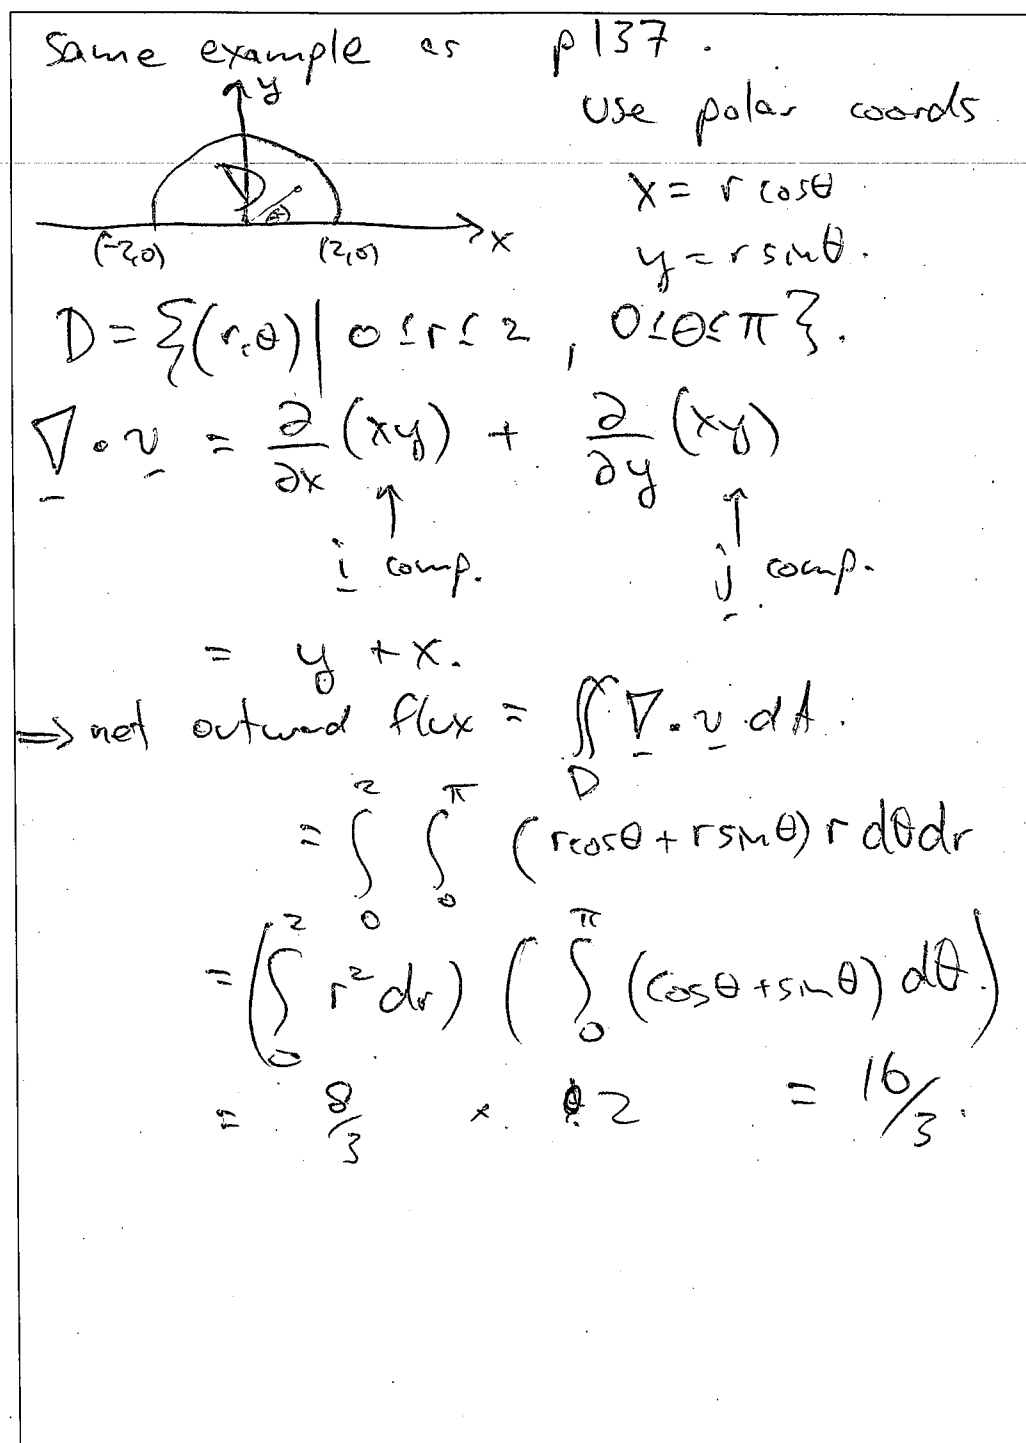 Same example as p137.
use polar coords
y
x = r cosθ
D
θ
x
(-2,0)
(2,0)
y = r sinθ.
D = {(r,θ) | 0 ≤ r ≤ 2, 0 ≤ θ ≤ π}.
∇ · v = ∂/∂x (xy) + ∂/∂y (xy)
↑ ↑
i comp. j comp.
= y + x.
⇒ net outward flux = ∬_D ∇ · v dA.
= ∫_0^2 ∫_0^π (r cosθ + r sinθ) r dθ dr
= (∫_0^2 r² dr) (∫_0^π (cosθ + sinθ) dθ.)
= 8/3 × 2 = 16/3.